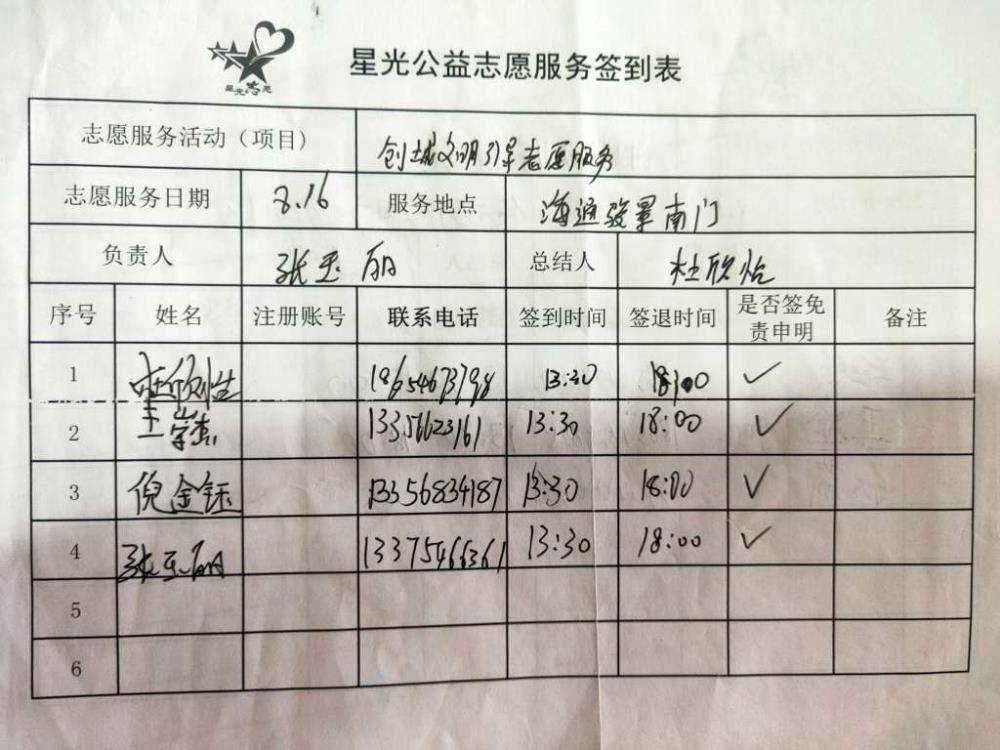 星光志愿
星光公益志愿服务签到表
志愿服务活动（项目） 创城文明引导志愿服务
志愿服务日期 8.16 服务地点 海通骏景南门
负责人 张玉丽 总结人 杜欣怡
序号 姓名 注册账号 联系电话 签到时间 签退时间 是否签免责申明 备注
1 杜欣怡 18654673798 13:30 18:00 ✓
2 王崇杰 13356623161 13:30 18:00 ✓
3 倪金钰 13356834187 13:30 18:00 ✓
4 张玉丽 13375466361 13:30 18:00 ✓
5
6